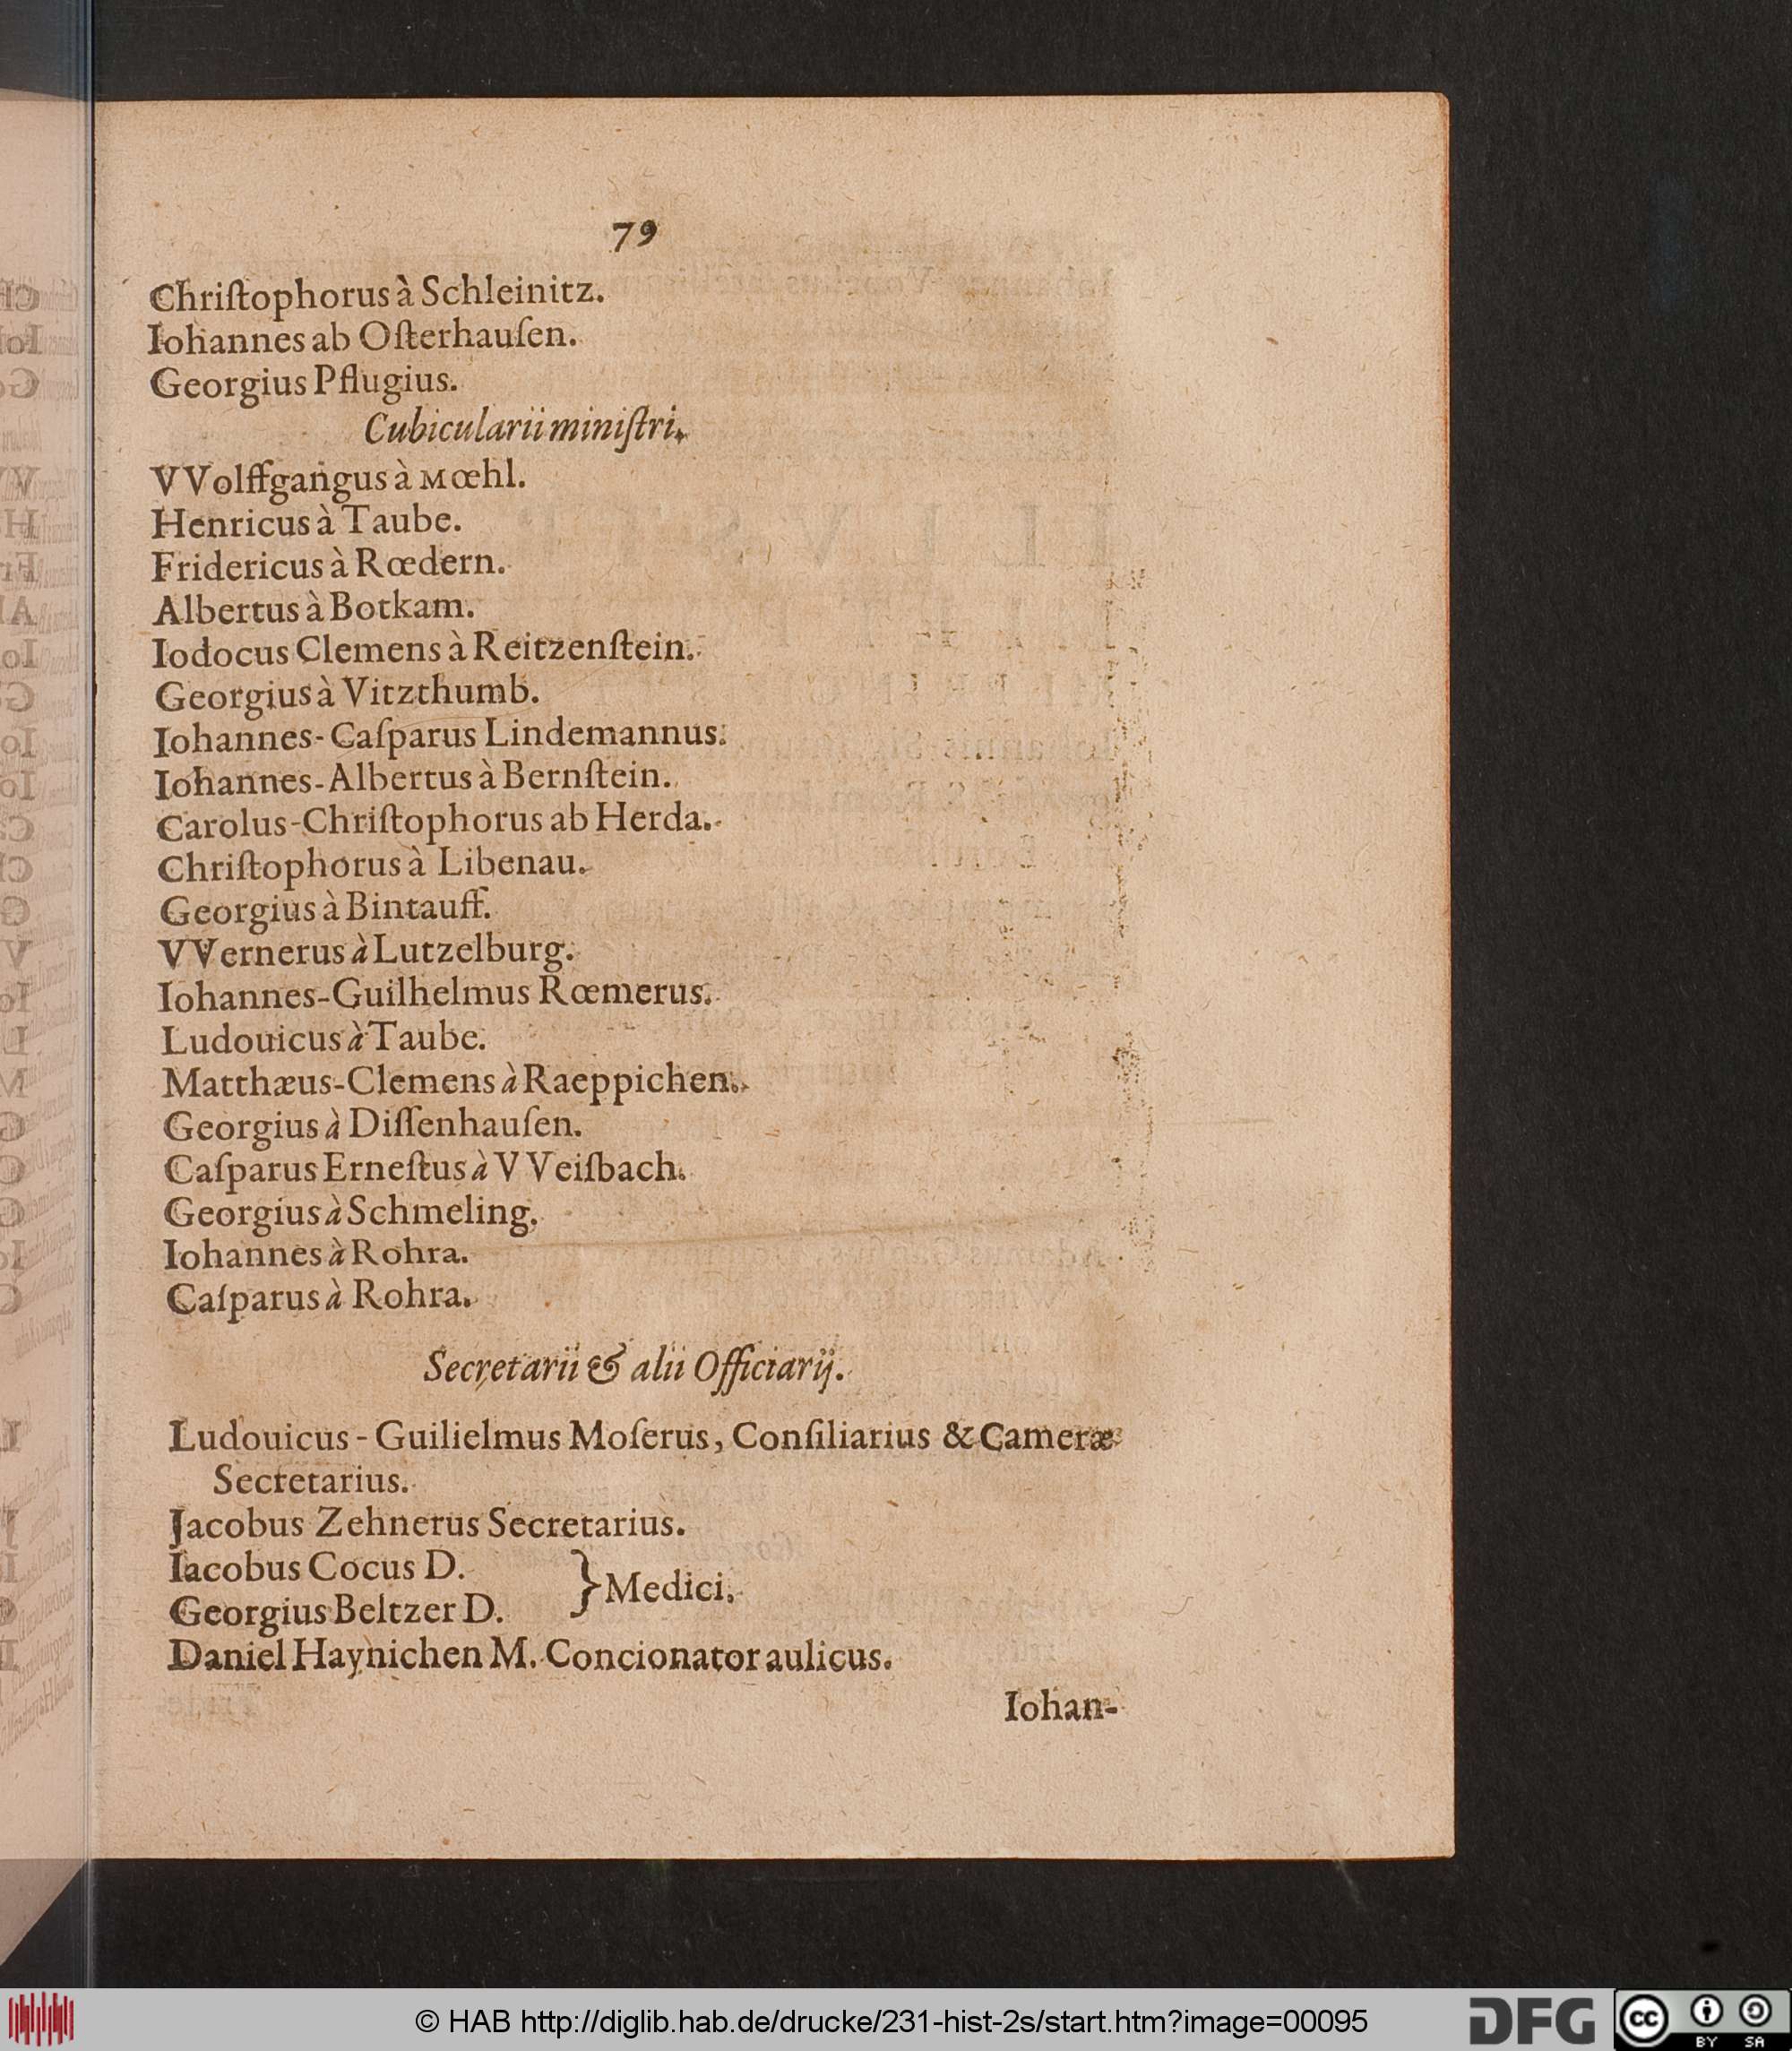 79
Chriſtophorus à Schleinitz.
Iohannes ab Oſterhauſen.
Georgius Pflugius.
Cubicularii miniſtri.
VVolffgangus à Mœhl.
Henricus à Taube.
Fridericus à Rœdern.
Albertus à Botkam.
Iodocus Clemens à Reitzenſtein.
Georgius à Vitzthumb.
Iohannes-Caſparus Lindemannus.
Iohannes-Albertus à Bernſtein.
Carolus-Chriſtophorus ab Herda.
Chriſtophorus à Libenau.
Georgius à Bintauff.
VVernerus à Lutzelburg.
Iohannes-Guilhelmus Rœmerus.
Ludouicus à Taube.
Matthæus-Clemens à Raeppichen.
Georgius à Diſſenhauſen.
Caſparus Erneſtus à VVeiſbach.
Georgius à Schmeling.
Iohannes à Rohra.
Caſparus à Rohra.
Secretarii & alii Officiarij.
Ludouicus-Guilielmus Moſerus, Conſiliarius & Cameræ
Secretarius.
Jacobus Zehnerus Secretarius.
Iacobus Cocus D.
Georgius Beltzer D.
} Medici.
Daniel Haynichen M. Concionator aulicus.
Iohan-
© HAB http://diglib.hab.de/drucke/231-hist-2s/start.htm?image=00095
DFG
cc BY SA